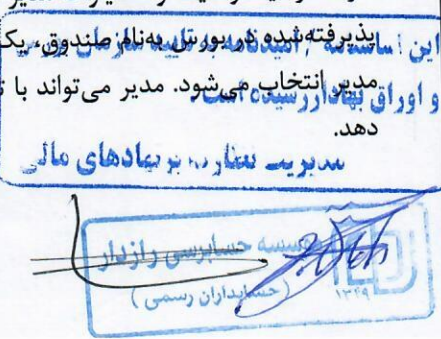 پذیرفته‌شده در بورس به‌نام صندوق، یک
مدیر انتخاب می‌شود. مدیر می‌تواند با
دهد.
این اساسنامه / امیدنامه به تایید سازمان بورس
و اوراق بهادار رسیده است.
مدیریت نظارت بر نهادهای مالی
موسسه حسابرسی رازدار
(حسابداران رسمی)
۱۳۴۹